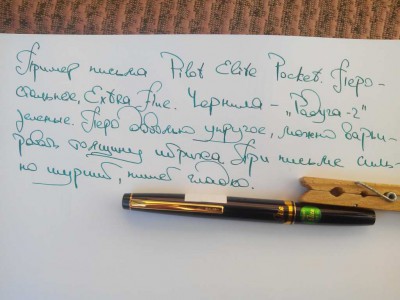 Пример письма Pilot Elite Pocket. Перо-
стальное, Extra Fine. Чернила - „Радуга-2"
зеленые. Перо довольно упругое, можно варьи-
ровать толщину штриха. При письме силь-
но шуршит, пишет гладко.